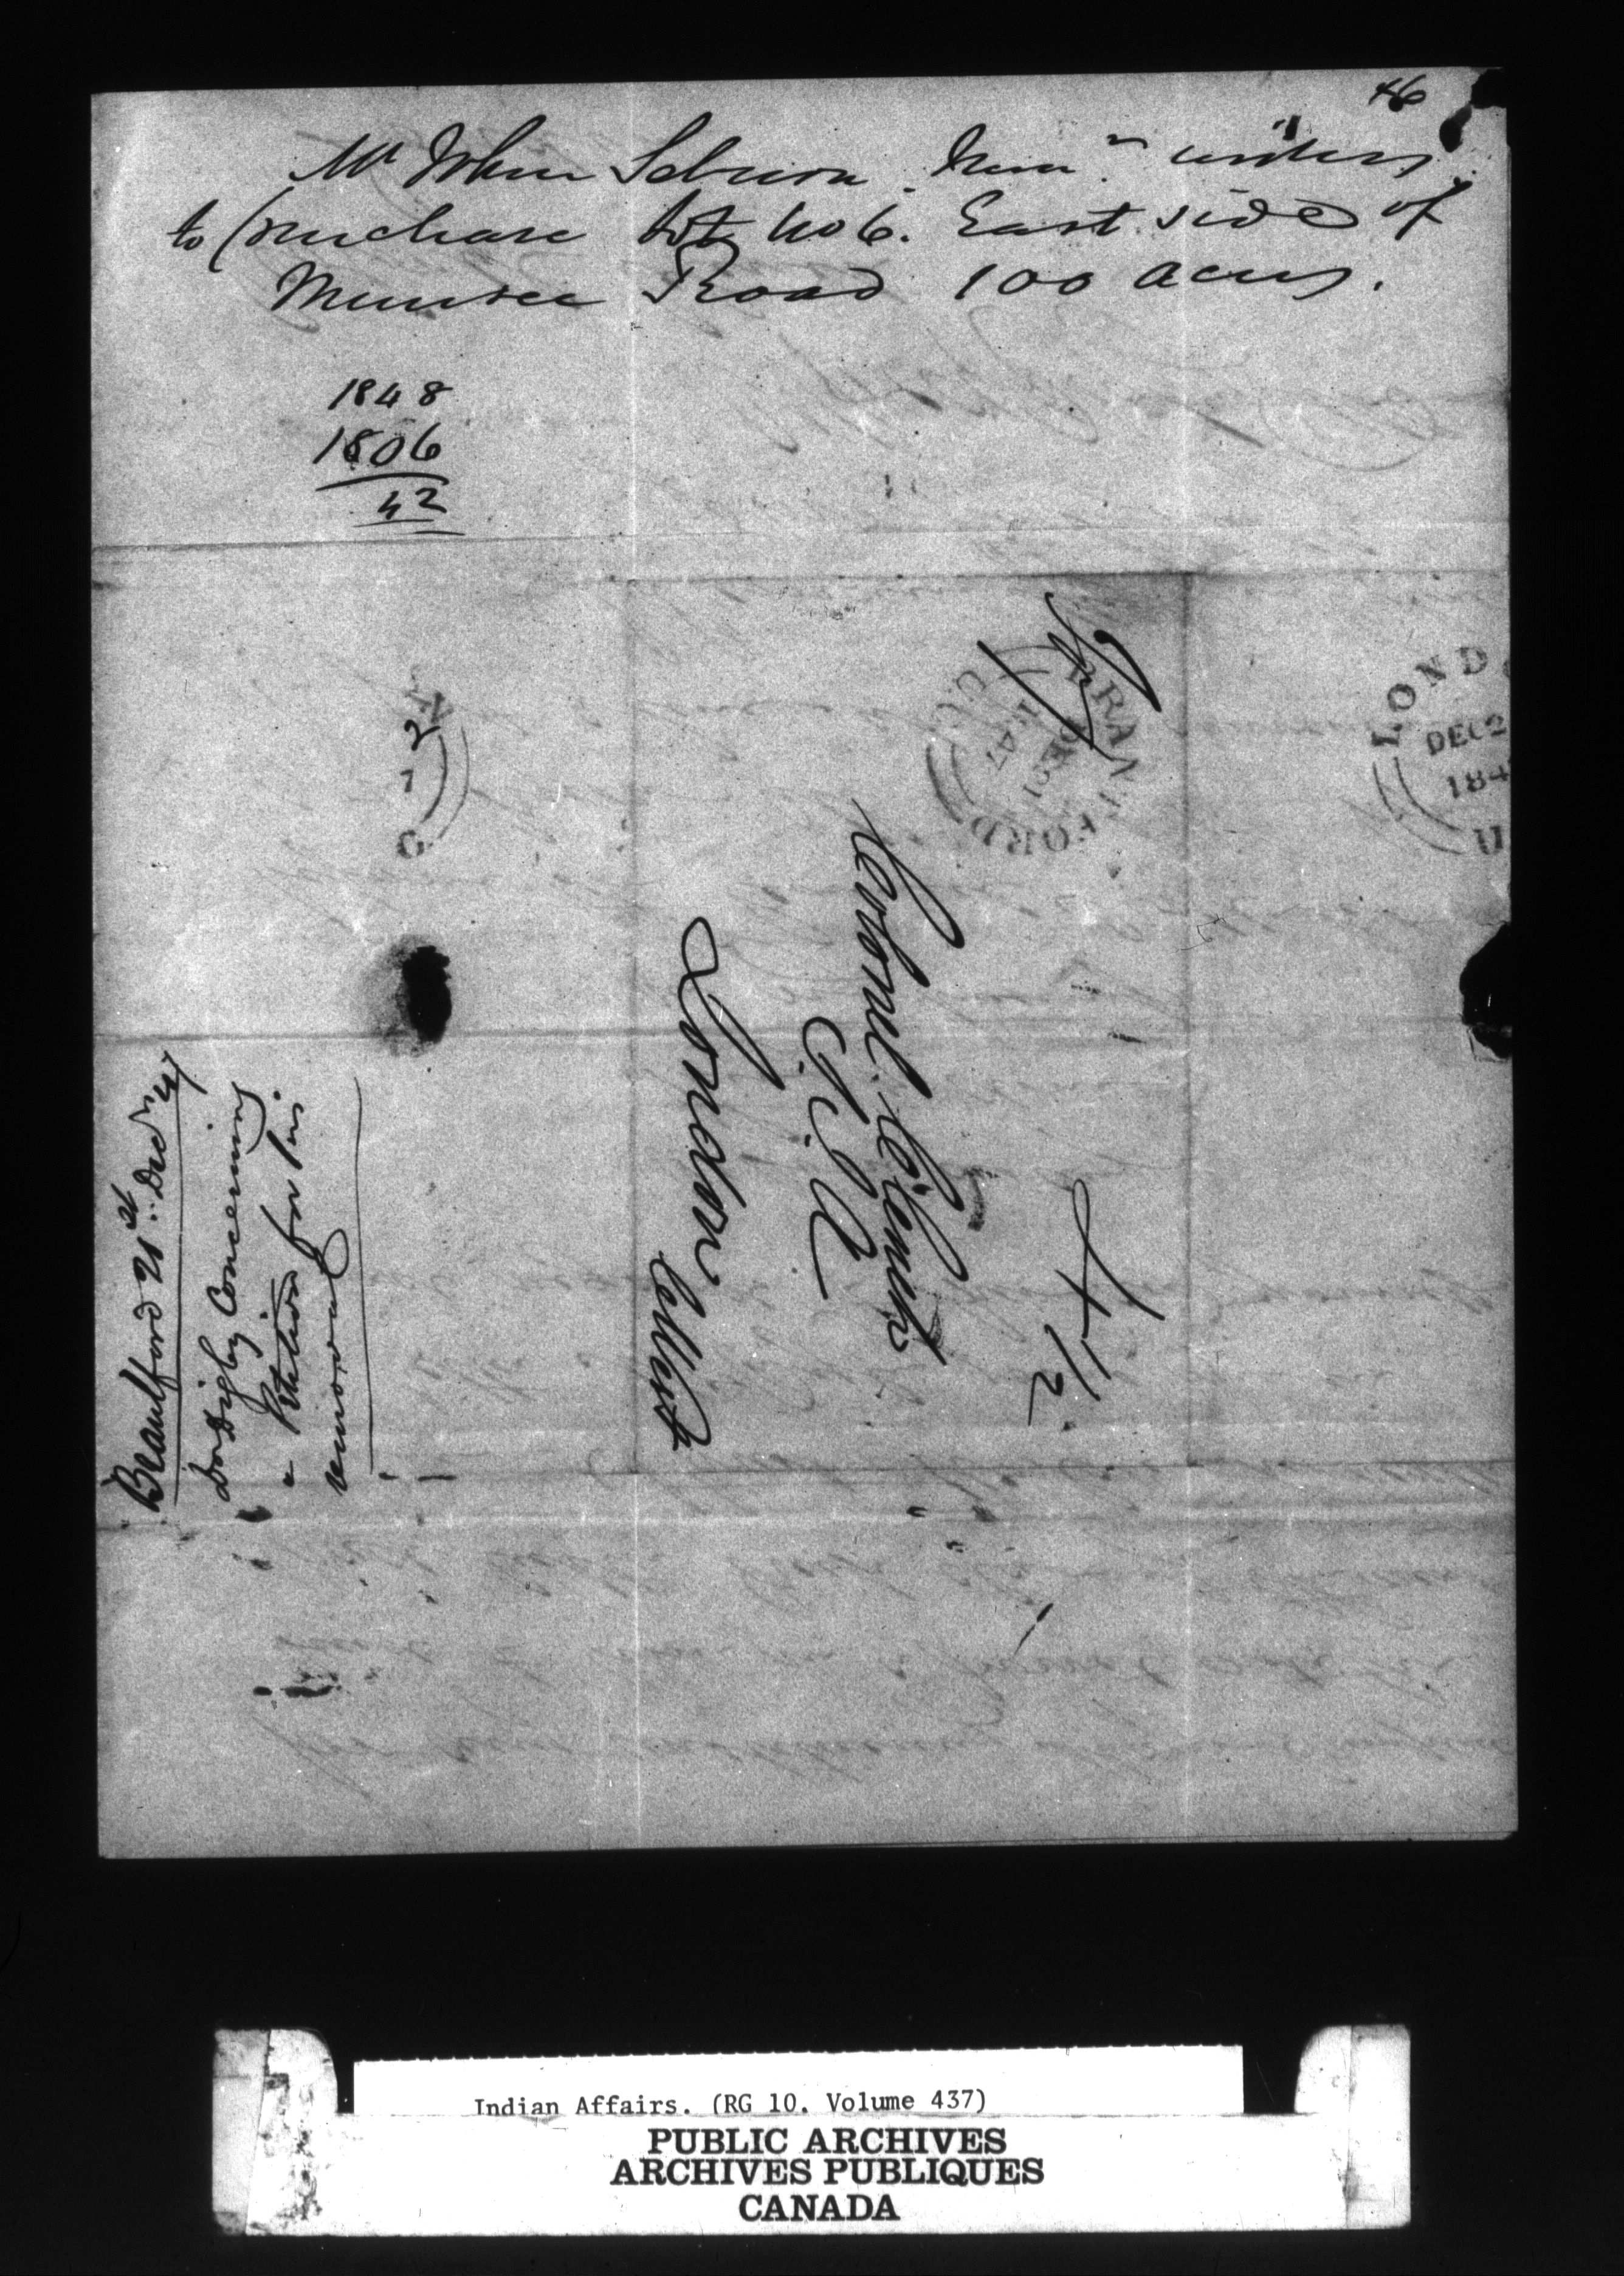 46
Mr John wishes
to purchase Lot No 6. East side of
Muncee Road 100 acres.
1848
1806
42
BRANTFORD
DE 21
1847
U.C.
LOND
DEC 2
184
U
N
2
7
C
Colonel Clench
J. S. A
London
4 1/2
21st Decr 47
Dr Digby Concerning
a Petition for his
removal
Indian Affairs. (RG 10. Volume 437)
PUBLIC ARCHIVES
ARCHIVES PUBLIQUES
CANADA